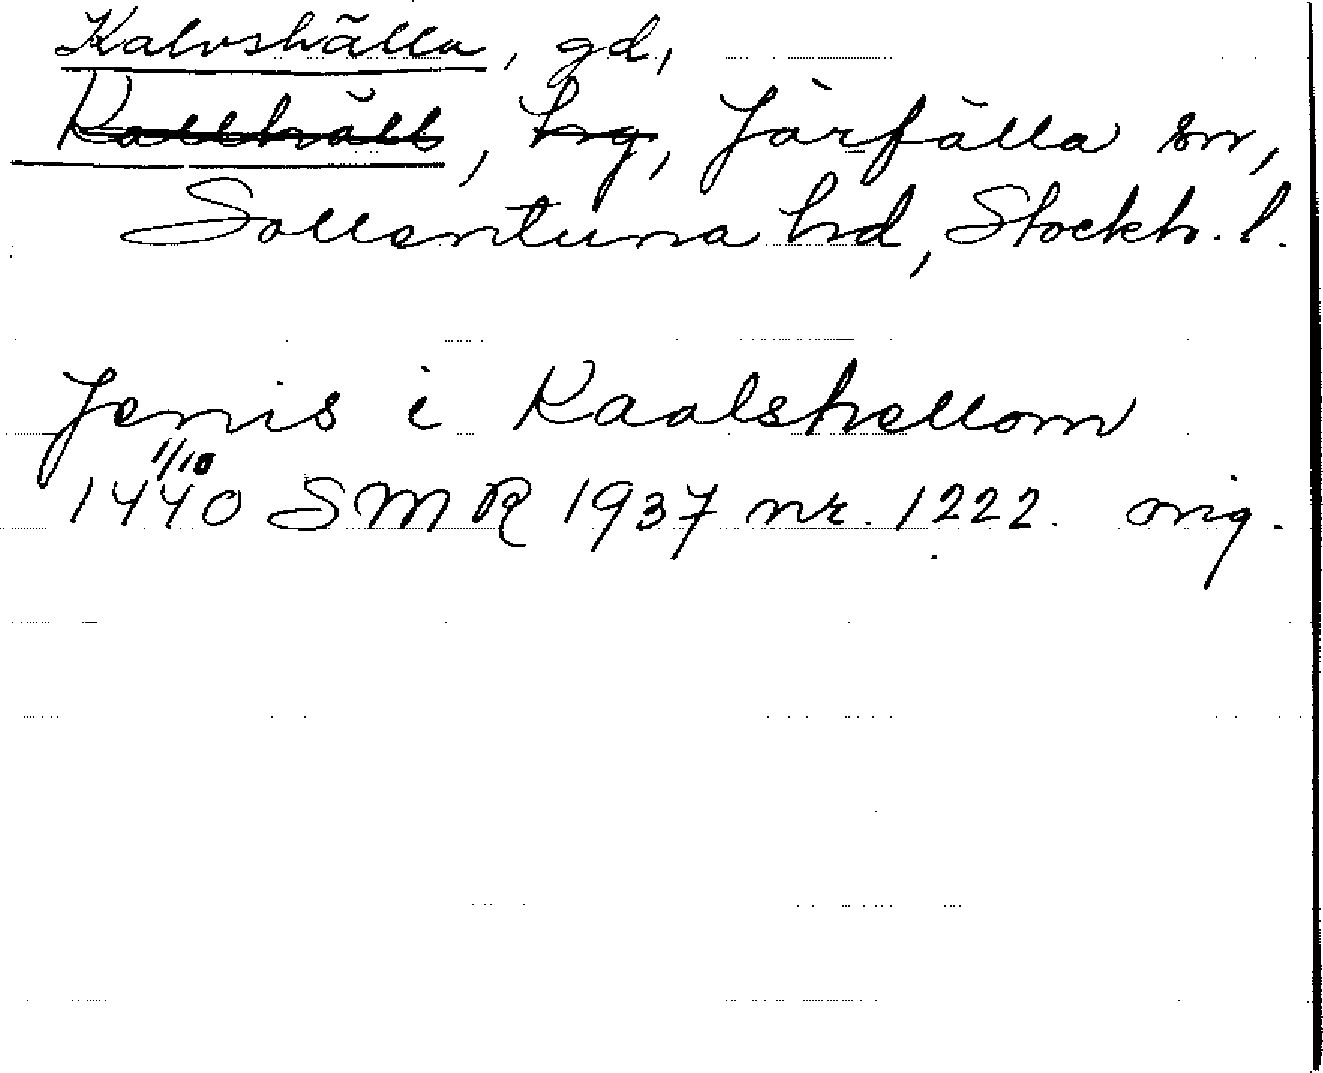 Kalvshälla, gd,
Kallhäll, hg, Järfälla sn,
Sollentuna hd, Stockh. l.
Jenis i Kaalshellom
1/10
1440 SMR 1937 nr. 1222. orig.